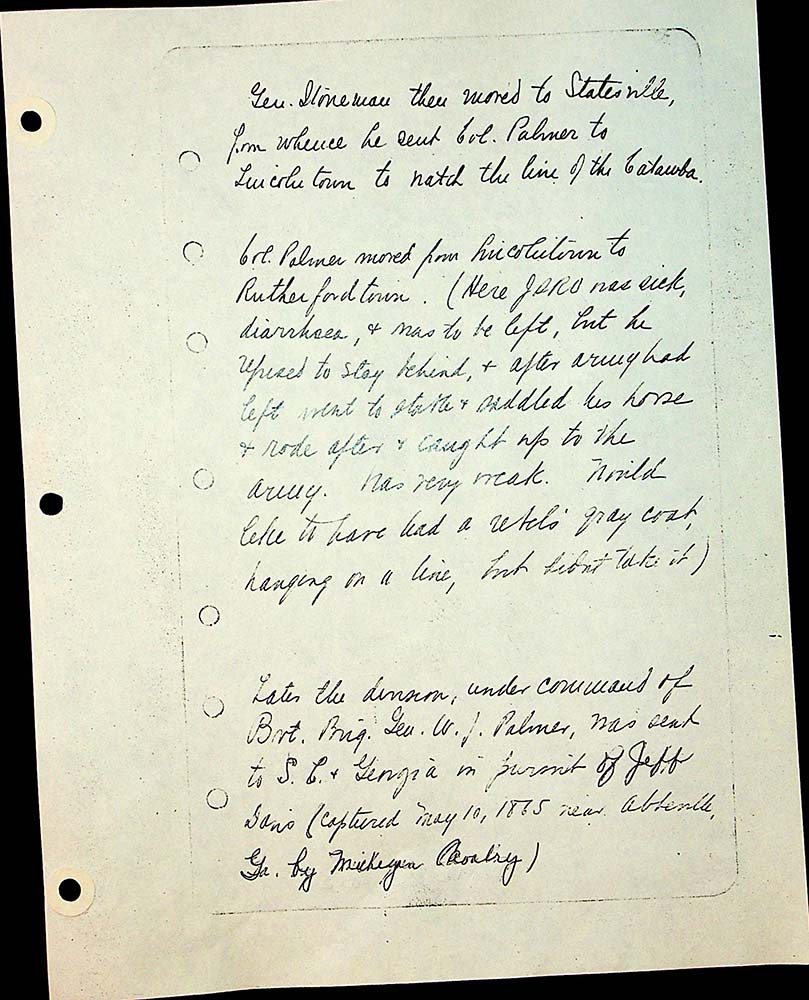 Gen. Stoneman then moved to Statesville,
from whence he sent Col. Palmer to
Lincolntown to watch the line of the Catawba.
Col. Palmer moved from Lincolntown to
Rutherfordtown. (Here was sick,
diarrhoea, & was to be left, but he
refused to stay behind, & after army had
left went to stable & saddled his horse
& rode after & caught up to the
army. Was very weak. Would
like to have had a rebel's gray coat,
hanging on a line, but didn't take it)
Later the division, under command of
Bvt. Brig. Gen. W. J. Palmer, was sent
to S. C. & Georgia in pursuit of Jeff
Davis (captured May 10, 1865 near Abbeville,
Ga. by Michigan Cavalry)